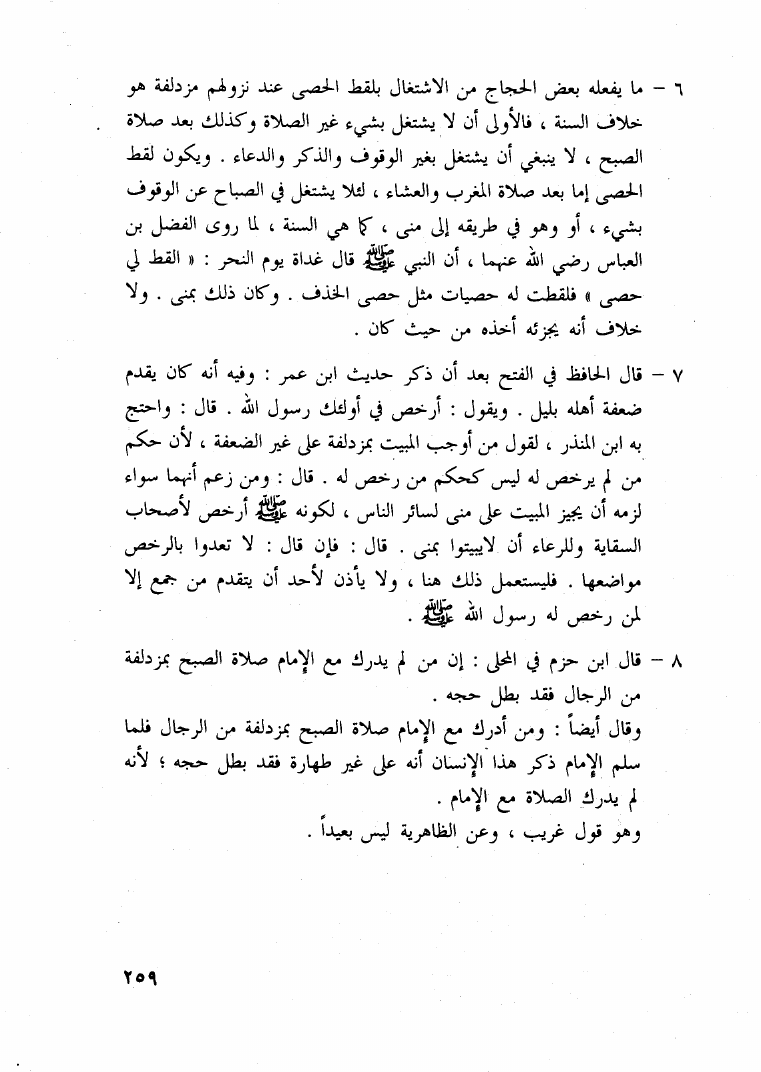 ٦ - ما يفعله بعض الحجاج من الاشتغال بلقط الحصى عند نزولهم مزدلفة هو
خلاف السنة ، فالأولى أن لا يشتغل بشيء غير الصلاة وكذلك بعد صلاة
الصبح ، لا ينبغي أن يشتغل بغير الوقوف والذكر والدعاء . ويكون لقط
الحصى إما بعد صلاة المغرب والعشاء ، لئلا يشتغل في الصباح عن الوقوف
بشيء ، أو وهو في طريقه إلى منى ، كما هي السنة ، لما روى الفضل بن
العباس رضي الله عنهما ، أن النبي ﷺ قال غداة يوم النحر : « القط لي
حصى » فلقطت له حصيات مثل حصى الخذف . وكان ذلك بمنى . ولا
خلاف أنه يجزئه أخذه من حيث كان .
٧ - قال الحافظ في الفتح بعد أن ذكر حديث ابن عمر : وفيه أنه كان يقدم
ضعفة أهله بليل . ويقول : أرخص في أولئك رسول الله . قال : واحتج
به ابن المنذر ، لقول من أوجب المبيت بمزدلفة على غير الضعفة ، لأن حكم
من لم يرخص له ليس كحكم من رخص له . قال : ومن زعم أنهما سواء
لزمه أن يجيز المبيت على منى لسائر الناس ، لكونه ﷺ أرخص لأصحاب
السقاية وللرعاء أن لايبيتوا بمنى . قال : فإن قال : لا تعدوا بالرخص
مواضعها . فليستعمل ذلك هنا ، ولا يأذن لأحد أن يتقدم من جمع إلا
لمن رخص له رسول الله ﷺ .
٨ - قال ابن حزم في المحلى : إن من لم يدرك مع الإمام صلاة الصبح بمزدلفة
من الرجال فقد بطل حجه .
وقال أيضاً : ومن أدرك مع الإمام صلاة الصبح بمزدلفة من الرجال فلما
سلم الإمام ذكر هذا الإنسان أنه على غير طهارة فقد بطل حجه ؛ لأنه
لم يدرك الصلاة مع الإمام .
وهو قول غريب ، وعن الظاهرية ليس بعيداً .
٢٥٩